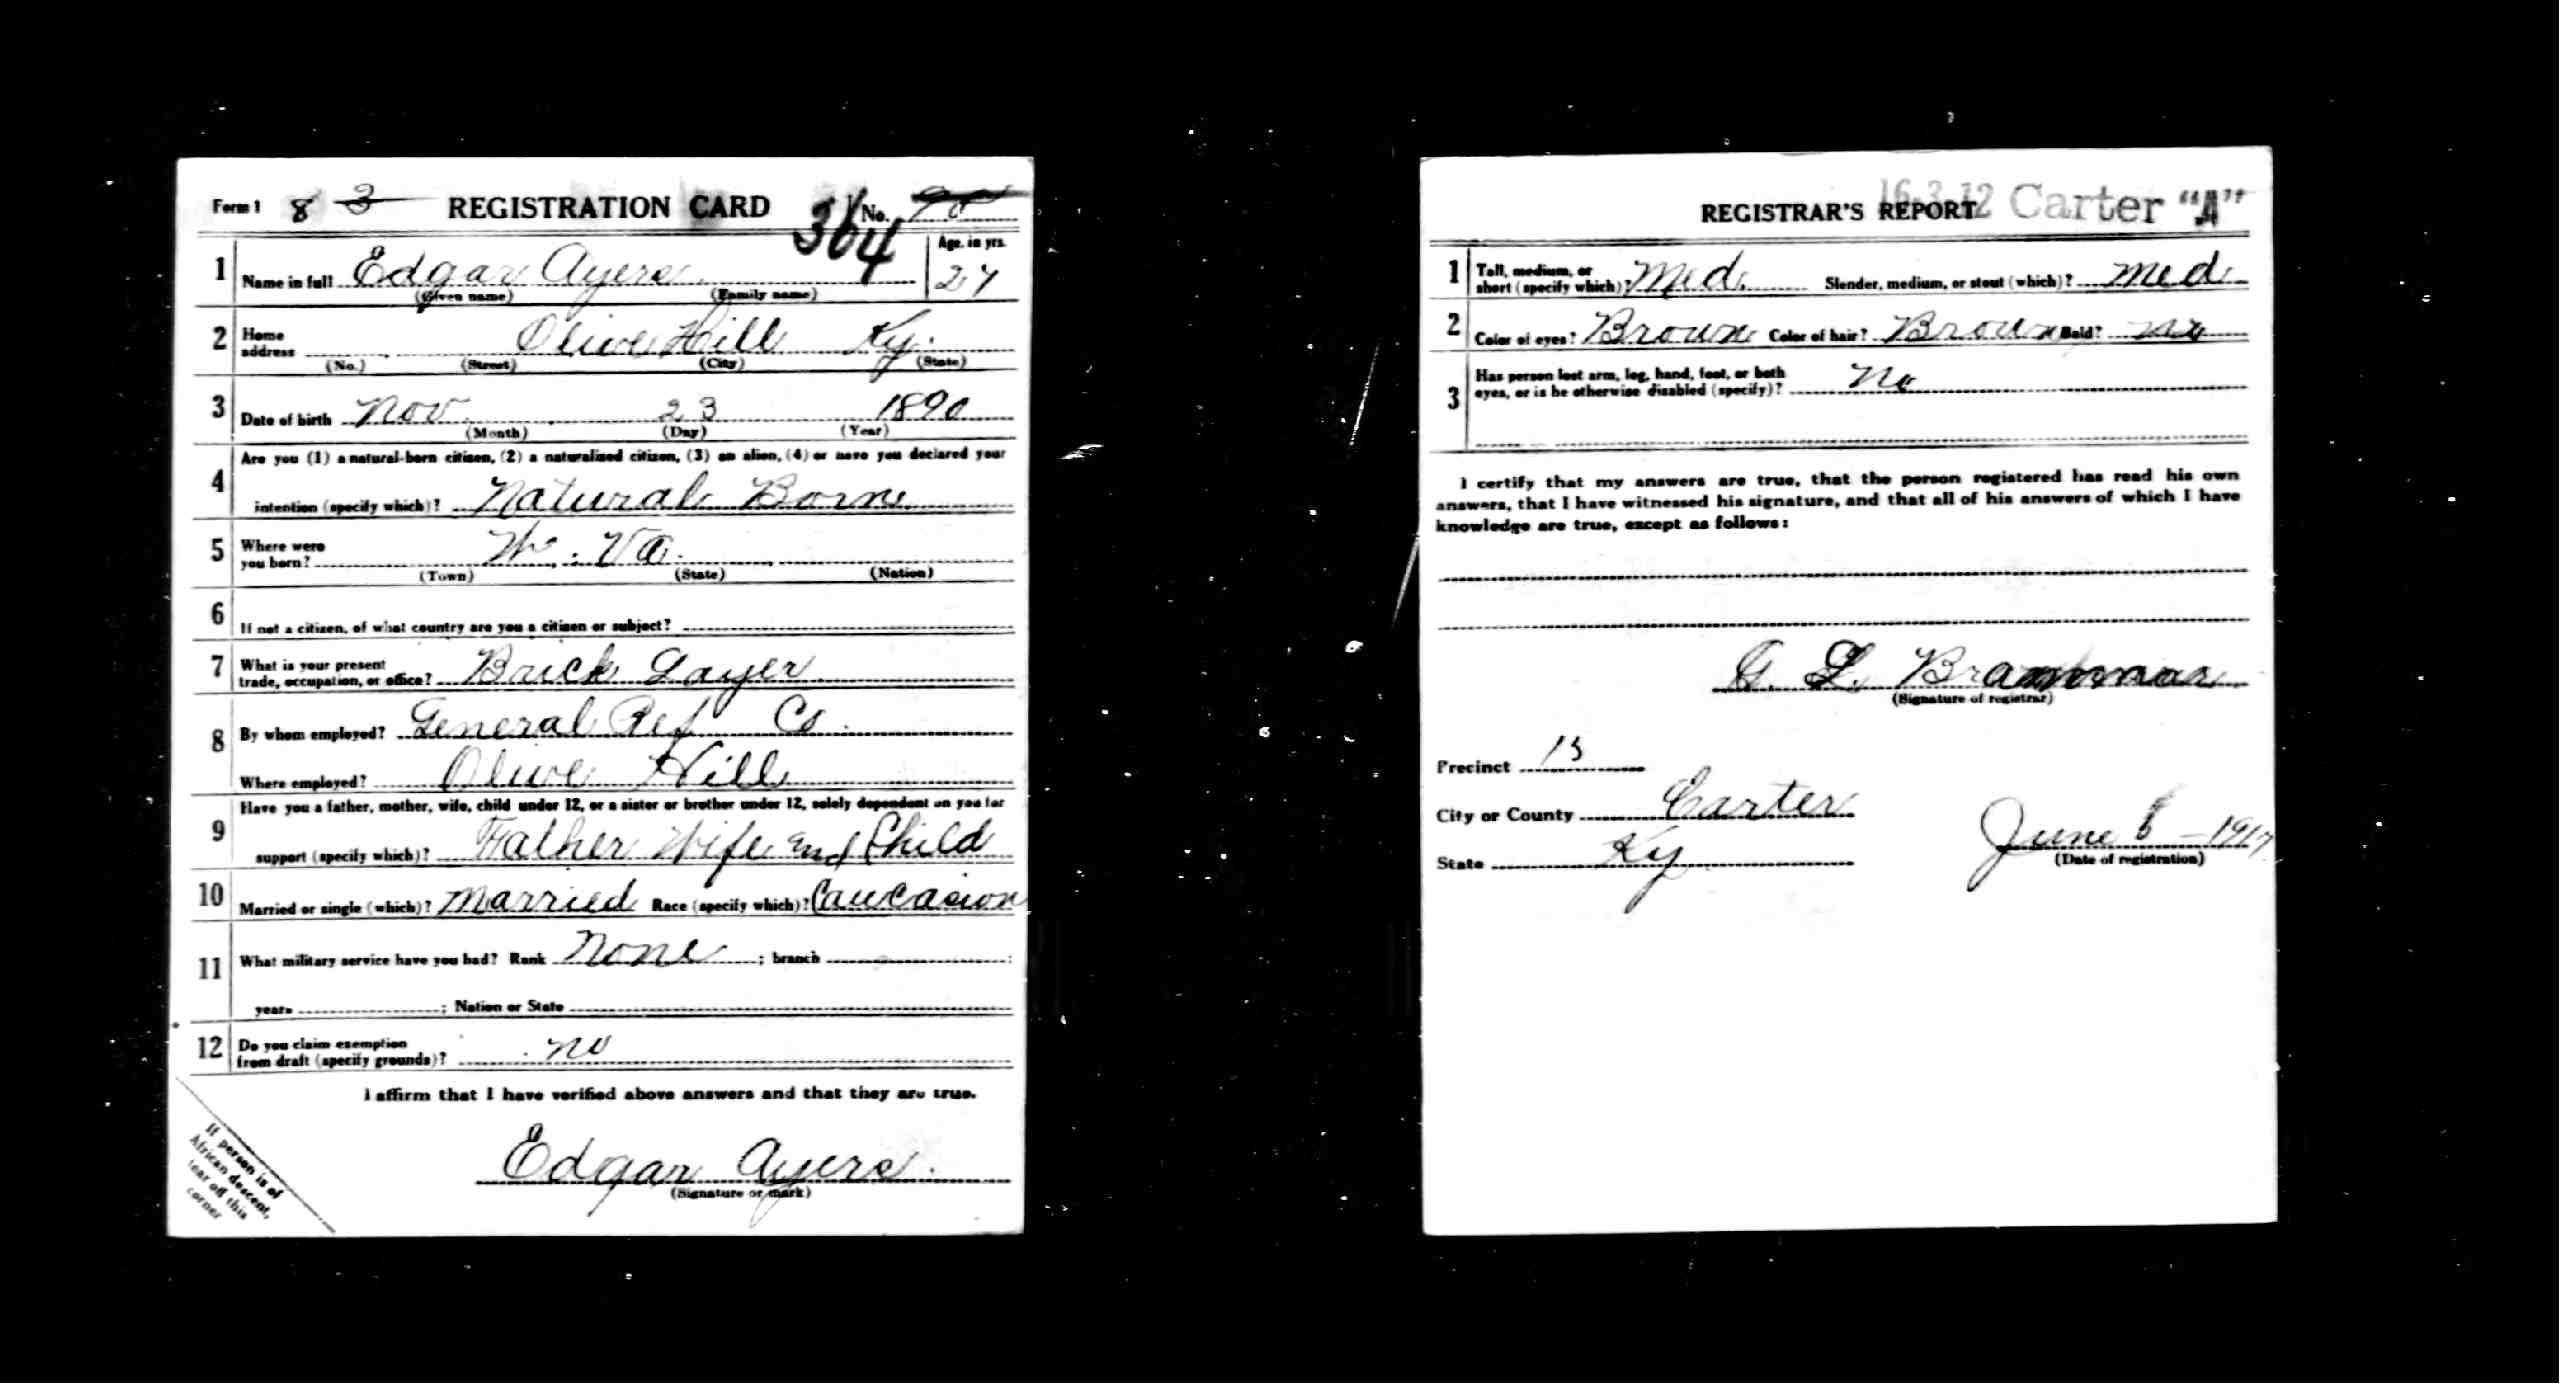 Form 1 8 3 REGISTRATION CARD 364 No. 90
1 Name in full Edgar Ayers Age, in yrs. 27
(Given name) (Family name)
2 Home address Olive Hill Ky.
(No.) (Street) (City) (State)
3 Date of birth Nov. 23 1890
(Month) (Day) (Year)
4 Are you (1) a natural-born citizen, (2) a naturalized citizen, (3) an alien, (4) or have you declared your
intention (specify which)? Natural Born
5 Where were you born? W. Va.
(Town) (State) (Nation)
6 If not a citizen, of what country are you a citizen or subject?
7 What is your present trade, occupation, or office? Brick Layer
8 By whom employed? General Ref Co.
Where employed? Olive Hill
9 Have you a father, mother, wife, child under 12, or a sister or brother under 12, solely dependent on you for
support (specify which)? Father Wife and Child
10 Married or single (which)? Married Race (specify which)? Caucasion
11 What military service have you had? Rank None ; branch ;
years ; Nation or State
12 Do you claim exemption from draft (specify grounds)? no
I affirm that I have verified above answers and that they are true.
Edgar Ayers.
(Signature or mark)
If person is of
African descent,
tear off this
corner
16-3-12 Carter "A"
REGISTRAR'S REPORT
1 Tall, medium, or short (specify which)? Med. Slender, medium, or stout (which)? Med
2 Color of eyes? Brown Color of hair? Brown Bald? no
3 Has person lost arm, leg, hand, foot, or both
eyes, or is he otherwise disabled (specify)? No
I certify that my answers are true, that the person registered has read his own
answers, that I have witnessed his signature, and that all of his answers of which I have
knowledge are true, except as follows:
G. L. Brammar
(Signature of registrar)
Precinct 13
City or County Carter
State Ky
June 6 - 1917
(Date of registration)